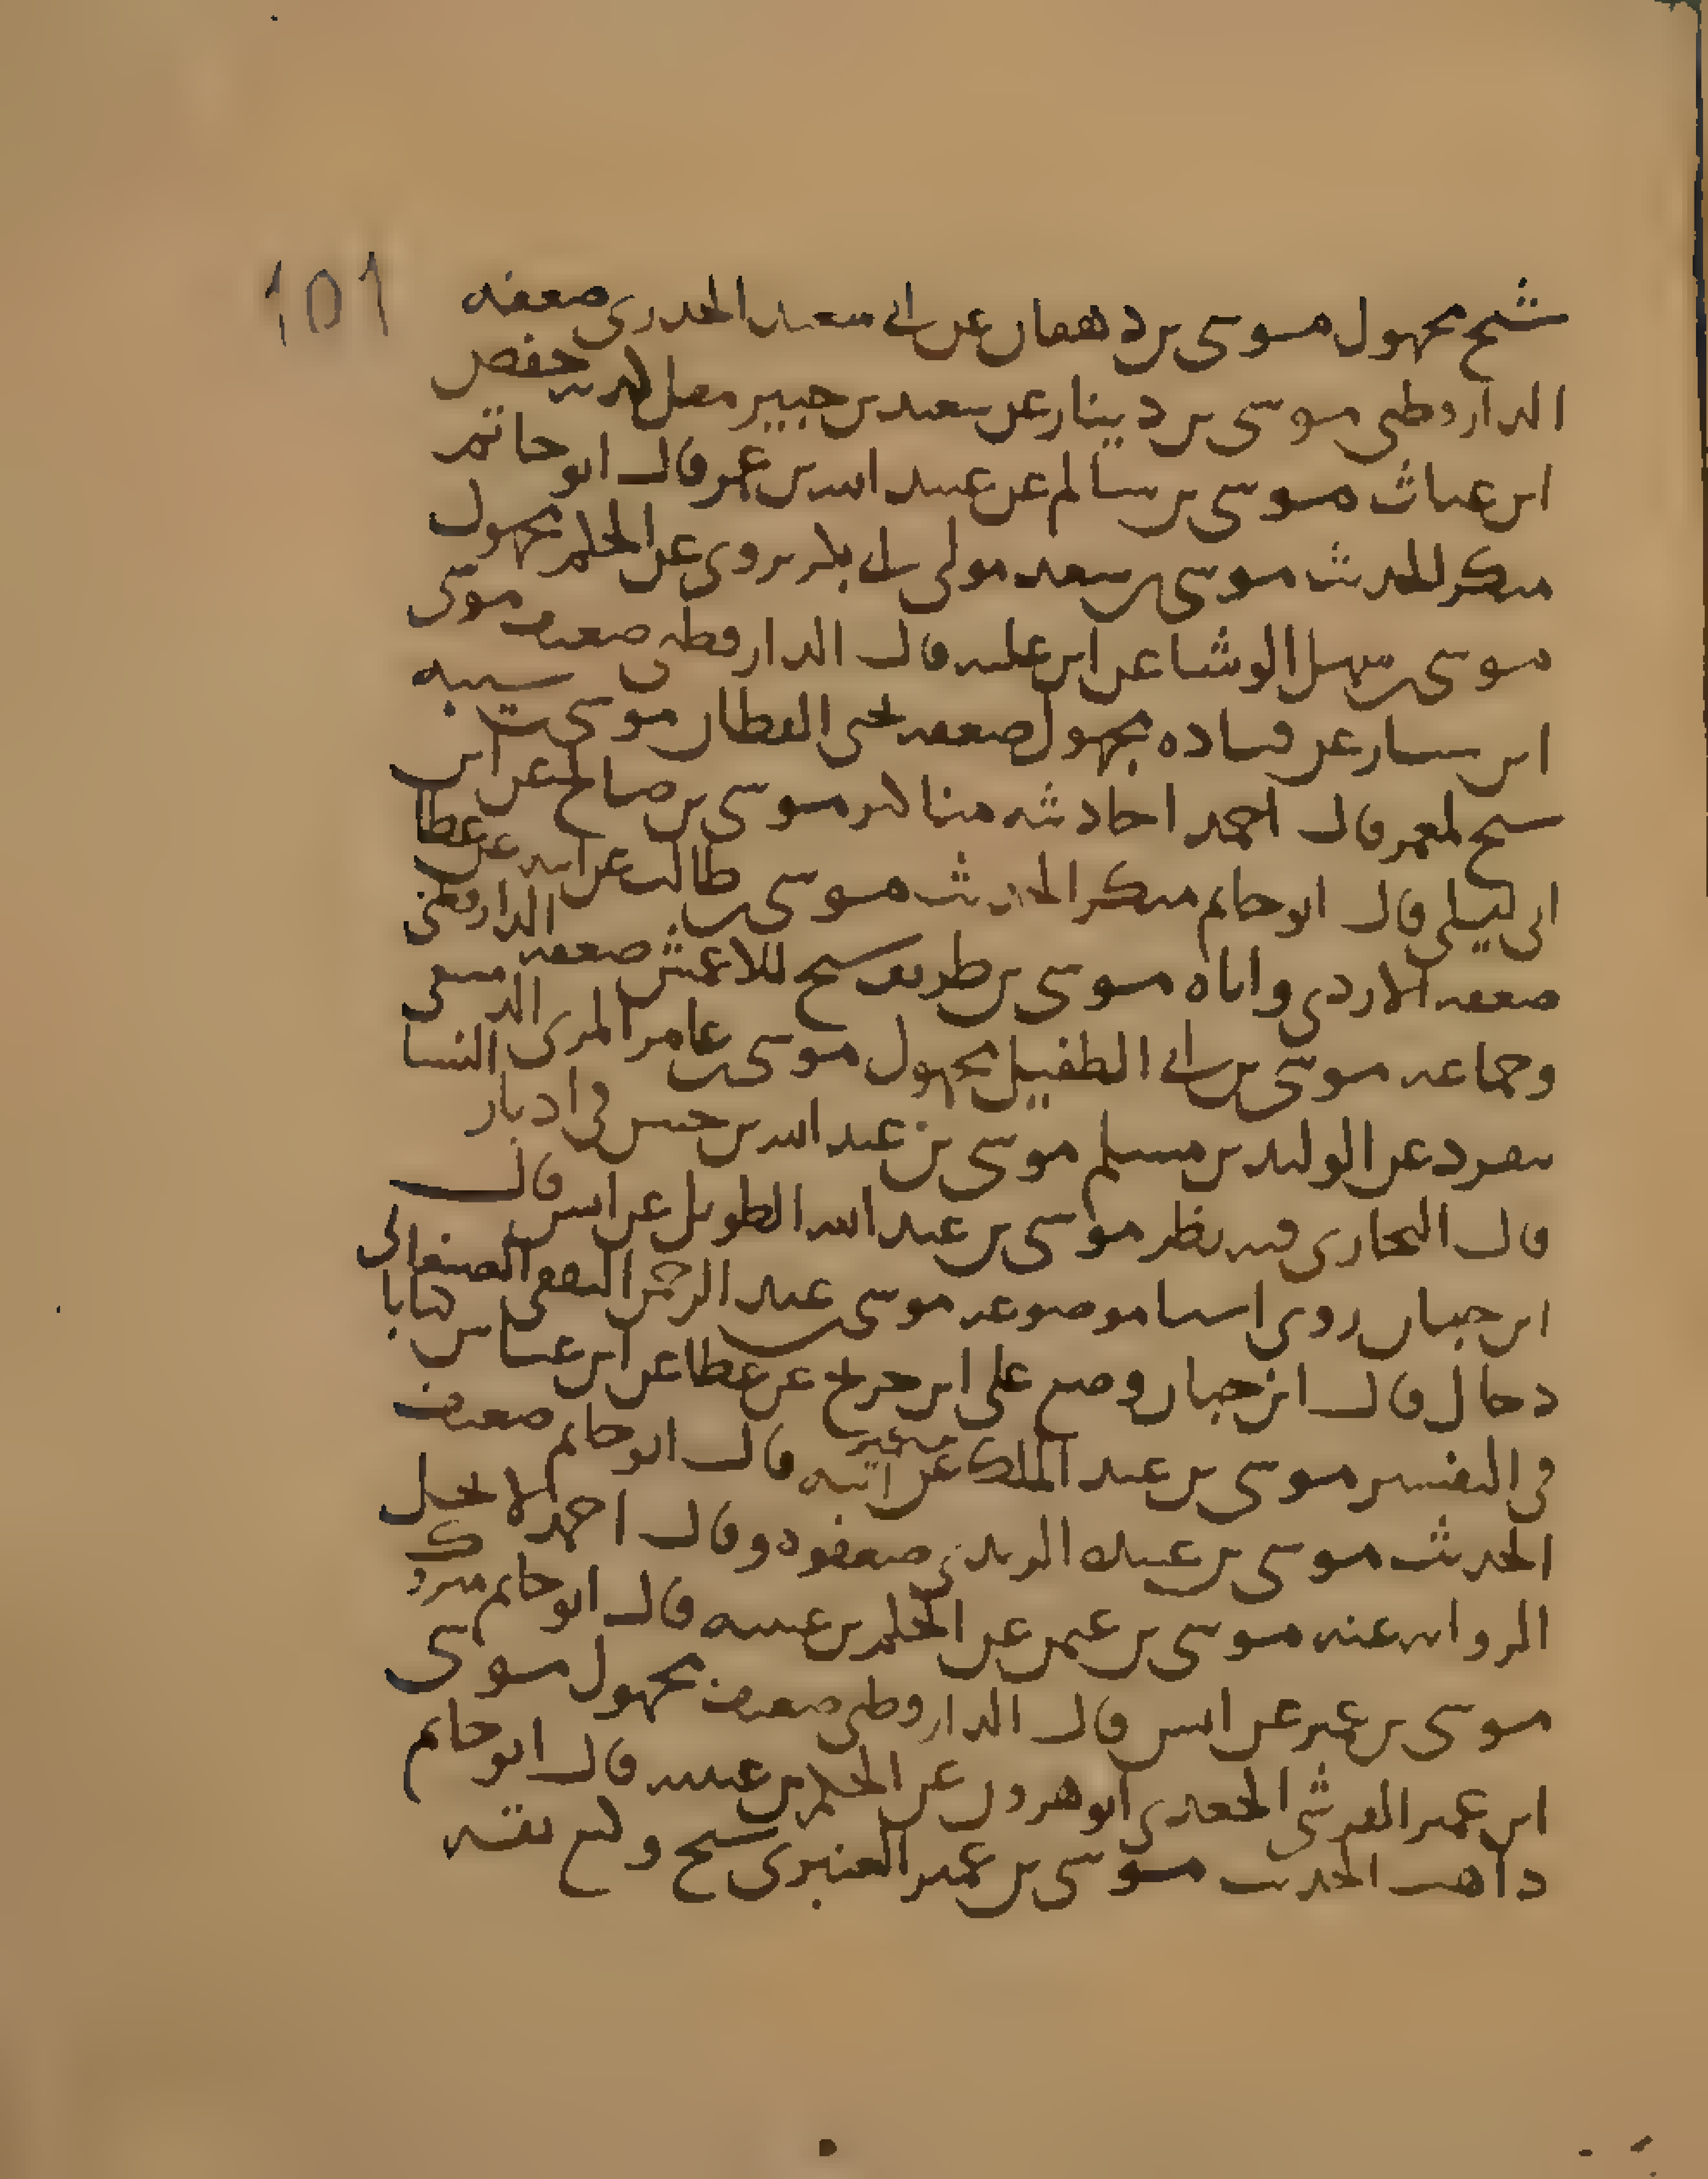 ١٥١
شيخ مجهول موسى بن دهقان عن ابي سعيد الخدري ضعفه
الدارقطني موسى بن دينار عن سعيد بن جبير مقل كذبه حفص
ابن غياث موسى بن سالم عن عبيد الله بن عمر قال ابو حاتم
منكر الحديث موسى بن سعد مولى ابي بكر يروي عن الحكم مجهول
موسى بن سهل الوشا عن ابن علية قال الدارقطني ضعيف موسى
ابن سيار عن قتاده مجهول ضعفه يحيى القطان موسى بن شيبه
شيخ لمعمر قال احمد احاديثه مناكير موسى بن صالح عن ابن
ابي ليلى قال ابو حاتم منكر الحديث موسى بن طالب عن ابيه عن عطا
ضعفه الازدي واباه موسى بن طريف شيخ للاعمش ضعفه الدارقطني
وجماعه موسى بن ابي الطفيل مجهول موسى بن عامر المري الدمشقي
تفرد عن الوليد بن مسلم موسى بن عبد الله بن حسن في ادبار النسا
قال البخاري فيه نظر موسى بن عبد الله الطويل عن انس قال
ابن حبان روى اشيا موضوعه موسى بن عبد الرحمن الثقفي الصنعاني
دجال قال ابن حبان وضع على ابن جريج عن عطا عن ابن عباس كتابا
في التفسير موسى بن عبد الملك بن عمير عن ابيه قال ابو حاتم ضعيف
الحديث موسى بن عبيده الربذي ضعفوه وقال احمد لا تحل
الروايه عنه موسى بن عمير عن الحكم بن عتيبه قال ابو حاتم متروك
موسى بن عمير عن انس قال الدارقطني ضعيف مجهول موسى
ابن عمير القرشي الجعدي ابو هرون عن الحكم بن عتيبه قال ابو حاتم
ذاهب الحديث موسى بن عمير العنبري شيخ وكيع ثقه